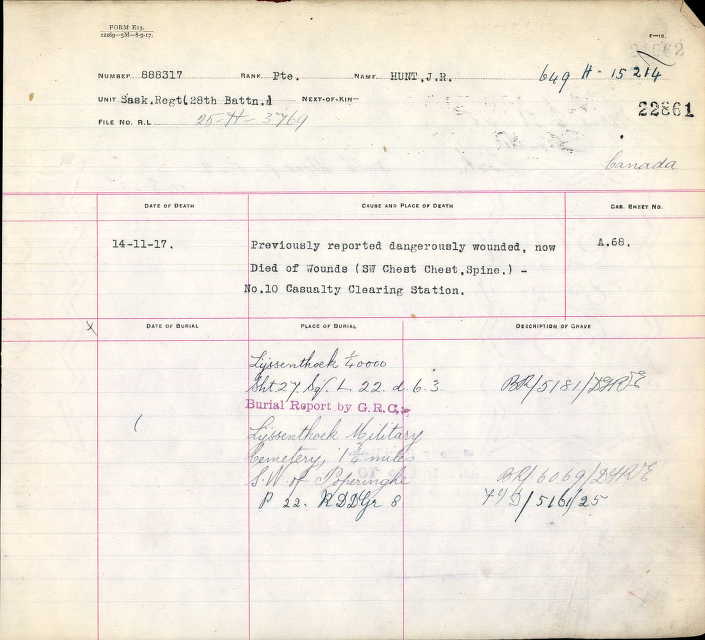 FORM E13.
12269—5M—8-9-17.
NUMBER 888317 RANK Pte. NAME HUNT,J.R. 649 H - 15214
UNIT Sask.Regt(28th Battn.) NEXT-OF-KIN
22861
FILE NO. R.L. 25-H-3769
Canada
DATE OF DEATH CAUSE AND PLACE OF DEATH CAS. SHEET NO.
14-11-17. Previously reported dangerously wounded, now A.68.
Died of Wounds (SW Chest Chest,Spine.) -
No.10 Casualty Clearing Station.
X DATE OF BURIAL PLACE OF BURIAL DESCRIPTION OF GRAVE
Lijssenthoek 1/40000
Sht 27 Sq. L. 22. d. 6.3 BR/5181/DGRE
Burial Report by G.R.C.
Lijssenthoek Military
Cemetery, 1 3/4 miles
S.W. of Poperinghe BR/6069/DGRE
P 22. Gr 8 /5161/25